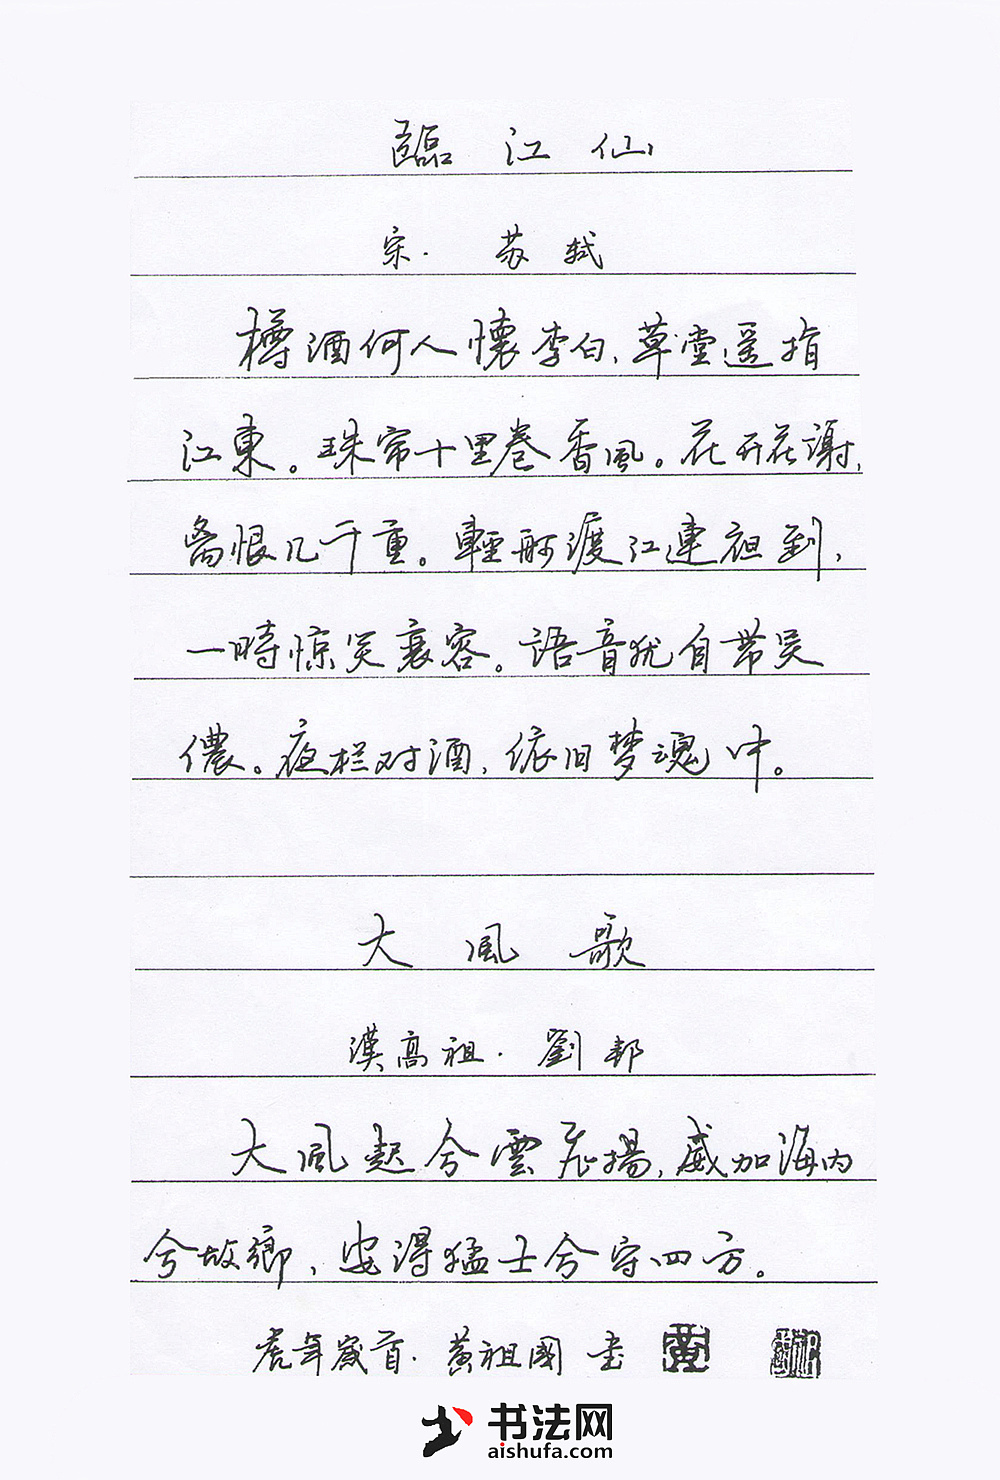 臨江仙
宋·苏軾
樽酒何人懷李白、草堂遥指
江東。珠帘十里卷香風。花开花謝,
离恨几千重。輕舸渡江連祖到,
一時惊笑衰容。語音犹自带吴
儂。夜栏对酒,依旧梦魂中。
大風歌
漢高祖·劉邦
大風起兮雲飛揚,威加海内
兮故鄉,安得猛士兮守四方。
虎年歲首·黄祖國书
书法网
aishufa.com